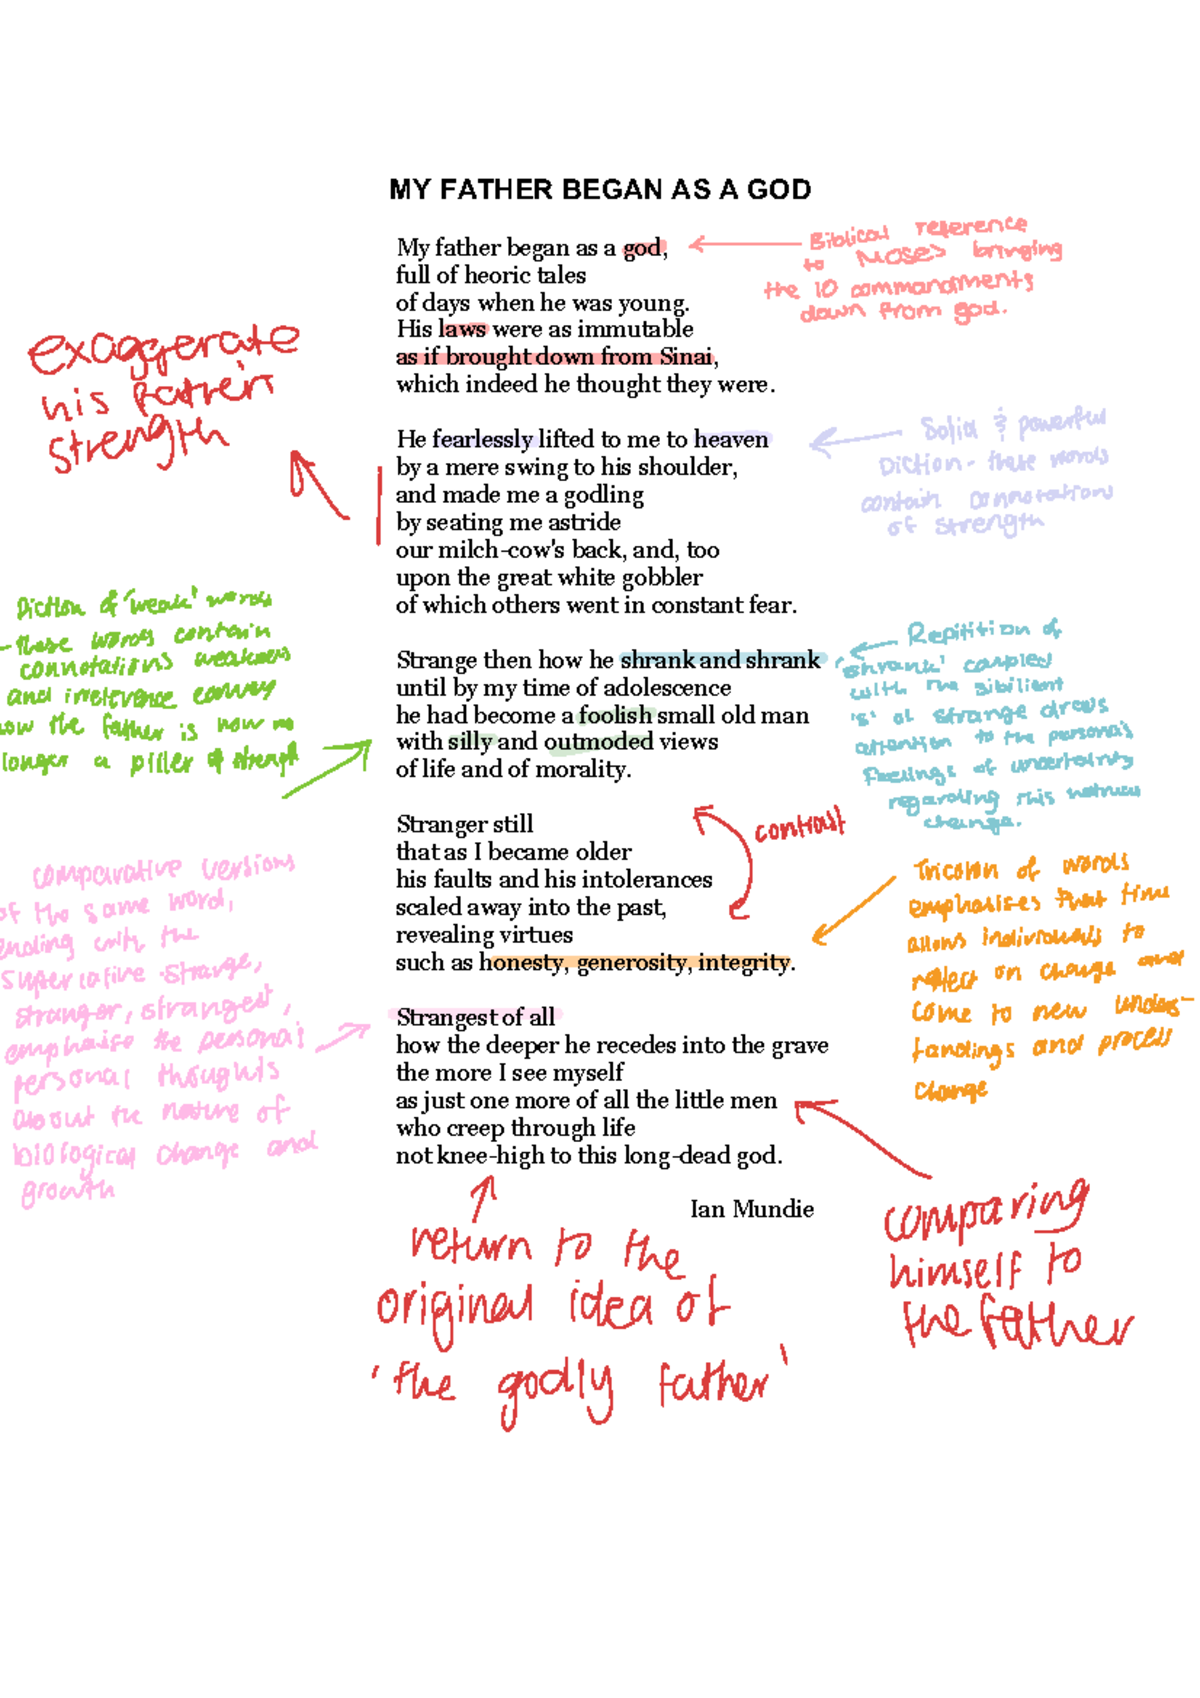 MY FATHER BEGAN AS A GOD
My father began as a god,
full of heoric tales
of days when he was young.
His laws were as immutable
as if brought down from Sinai,
which indeed he thought they were.
Biblical reference
to Moses bringing
the 10 commandments
down from god.
exaggerate
his father's
strength
He fearlessly lifted to me to heaven
by a mere swing to his shoulder,
and made me a godling
by seating me astride
our milch-cow's back, and, too
upon the great white gobbler
of which others went in constant fear.
Solid & powerful
Diction - these words
contain connotations
of strength
Diction of 'weak' words
- these words contain
connotations weakness
and irrelevance convey
how the father is now no
longer a piller of strength
Strange then how he shrank and shrank
until by my time of adolescence
he had become a foolish small old man
with silly and outmoded views
of life and of morality.
Repitition of
'shrank' coupled
with the sibilient
's' of strange draws
attention to the persona's
feelings of uncertainty
regarding this
change.
contrast
Stranger still
that as I became older
his faults and his intolerances
scaled away into the past,
revealing virtues
such as honesty, generosity, integrity.
Tricolon of words
emphasises that time
allows individuals to
reflect on change and
come to new unders-
tandings and process
change
comparative versions
of the same word,
ending with the
superlative strange,
stranger, strangest,
emphasise the persona's
personal thoughts
about the nature of
biological change and
growth
Strangest of all
how the deeper he recedes into the grave
the more I see myself
as just one more of all the little men
who creep through life
not knee-high to this long-dead god.
Ian Mundie
comparing
himself to
the father
return to the
original idea of
'the godly father'